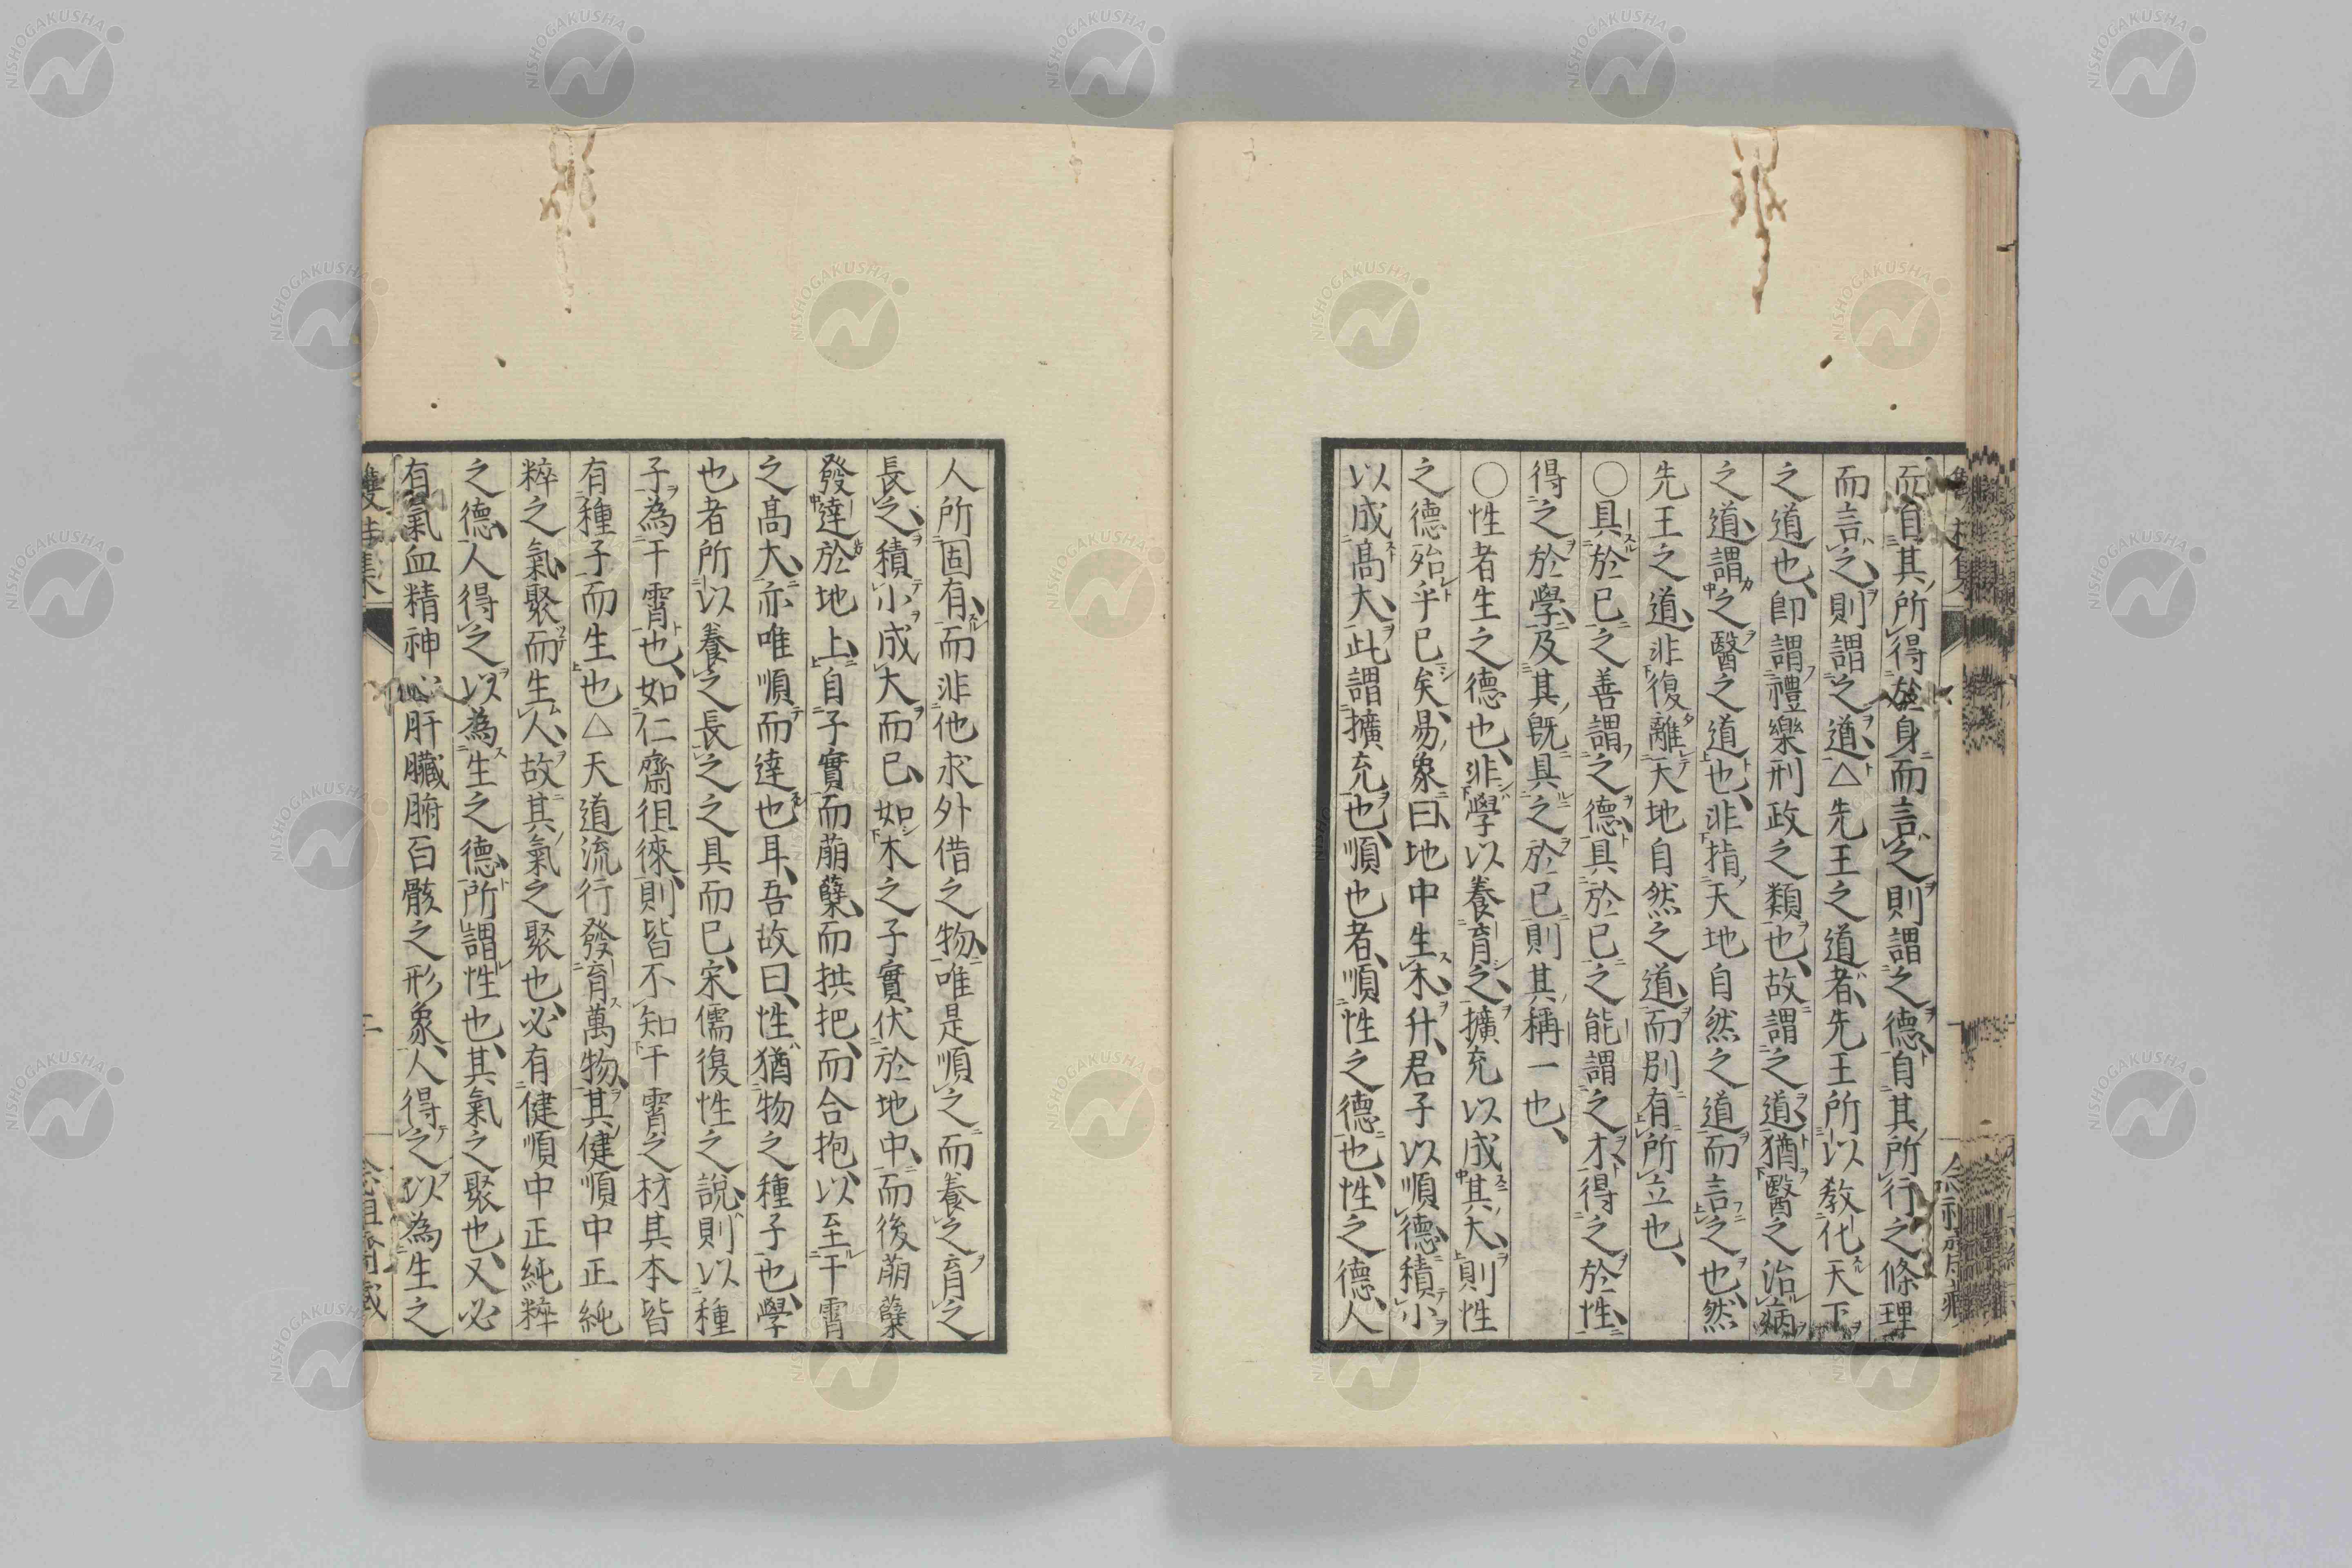 而自其所得於身而言之則謂之德自其所行之條理
而言之則謂之道△先王之道者先王所以教化天下
之道也即謂禮樂刑政之類也故謂之道猶醫之治病
之道謂之醫之道也非指天地自然之道而言之也然
先王之道非復離天地自然之道而別有所立也
〇具於己之善謂之德具於己之能謂之才得之於性
得之於學及其既具之於己則其稱一也
〇性者生之德也非學以養育之擴充以成其大則性
之德殆乎已矣易象曰地中生木升君子以順德積小
以成高大此謂擴充也順也者順性之德也性之德人
人所固有而非他求外借之物唯是順之而養之育之
長之積小成大而已如木之子實伏於地中而後萠蘖
發達於地上自子實而萠蘖而拱把而合抱以至干霄
之高大亦唯順而達也耳吾故曰性猶物之種子也學
也者所以養之長之之具而已宋儒復性之說則以種
子為干霄也如仁齋徂徠則皆不知干霄之材其本皆
有種子而生也△天道流行發育萬物其健順中正純
粹之氣聚而生人故其氣之聚也必有健順中正純粹
之德人得之以為生之德所謂性也其氣之聚也又必
有氣血精神心肝臟腑百骸之形象人得之以為生之
NISHOGAKUSHA